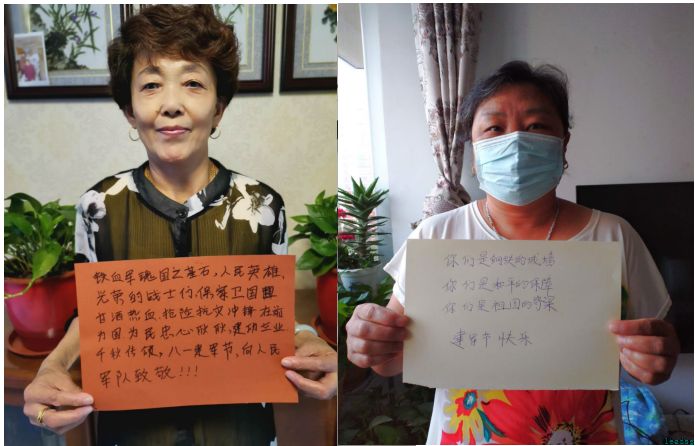 铁血军魂国之基石，人民英雄，
光荣的战士们保家卫国
甘洒热血，抢险抗灾冲锋在前
为国为民忠心欣欣，建功立业
千秋传颂，八一建军节，向人民
军队致敬！！！
你们是钢铁的城墙
你们是和平的保障
你们是祖国的脊梁
建军节快乐